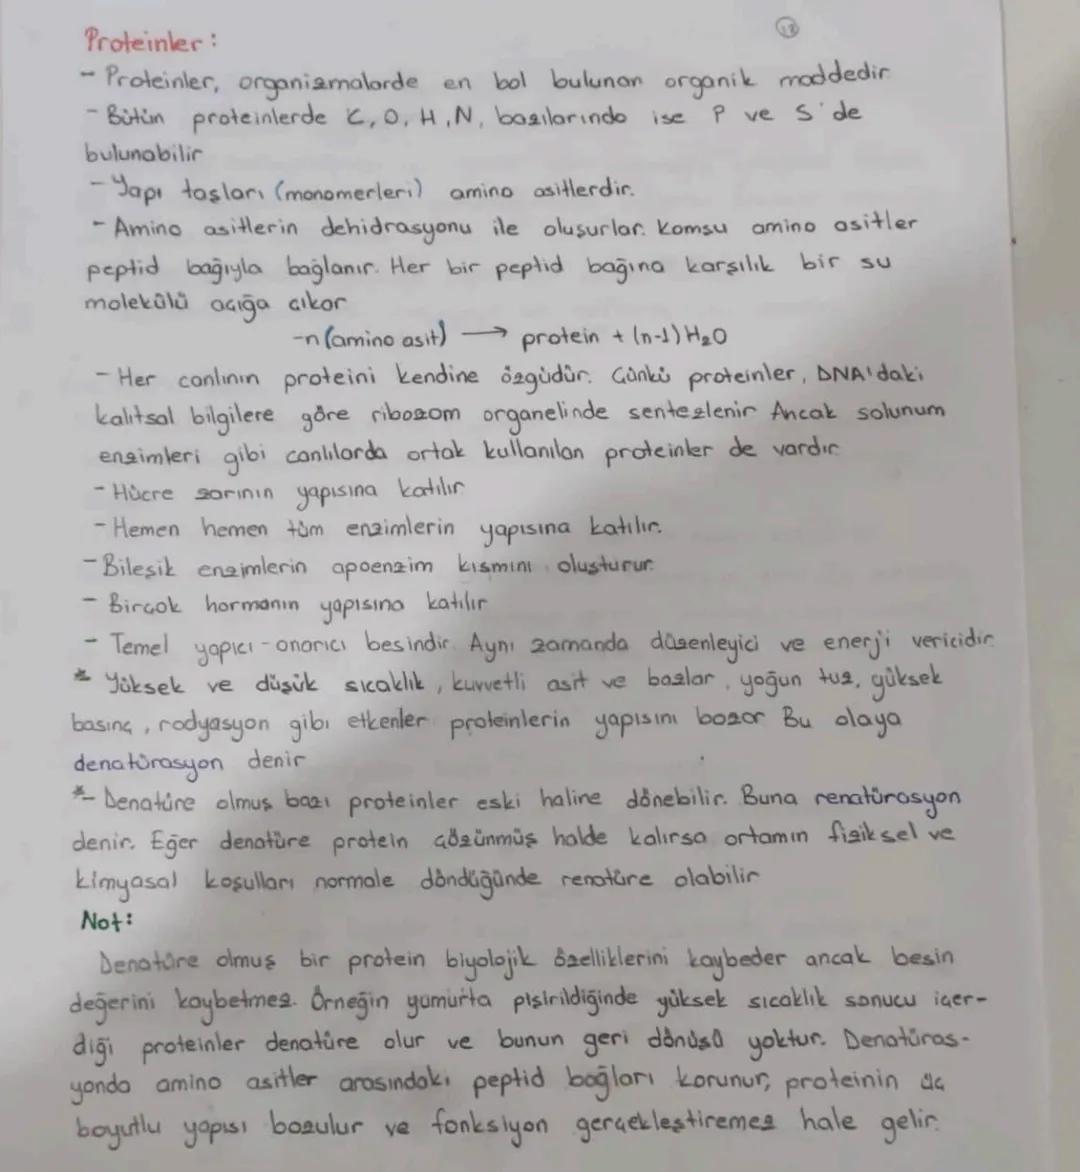 18
Proteinler:
- Proteinler, organizmalarda en bol bulunan organik maddedir
- Bütün proteinlerde C, O, H, N, bazılarında ise P ve S'de
bulunabilir
- Yapı taşları (monomerleri) amino asitlerdir.
- Amino asitlerin dehidrasyonu ile oluşurlar. Komsu amino asitler
peptid bağıyla bağlanır. Her bir peptid bağına karşılık bir su
molekülü açığa çıkar
-n(amino asit) → protein + (n-1) H₂O
- Her canlının proteini kendine özgüdür. Çünkü proteinler, DNA'daki
kalıtsal bilgilere göre ribozom organelinde sentezlenir Ancak solunum
enzimleri gibi canlılarda ortak kullanılan proteinler de vardır
- Hücre zarının yapısına katılır
- Hemen hemen tüm enzimlerin yapısına katılır.
- Bileşik enzimlerin apoenzim kısmını oluşturur.
- Birçok hormonın yapısına katılır
- Temel yapıcı-onarıcı besindir. Aynı zamanda düzenleyici ve enerji vericidir
* Yüksek ve düşük sıcaklık, kuvvetli asit ve bazlar, yoğun tuz, yüksek
basınç, radyasyon gibi etkenler proteinlerin yapısını bozar Bu olaya
denatürasyon denir
*- Denatüre olmuş bazı proteinler eski haline dönebilir. Buna renatürasyon
denir. Eğer denatüre protein çözünmüş halde kalırsa ortamın fiziksel ve
kimyasal koşulları normale döndüğünde renatüre olabilir
Not:
Denatüre olmuş bir protein biyolojik özelliklerini kaybeder ancak besin
değerini kaybetmez. Örneğin yumurta pişirildiğinde yüksek sıcaklık sonucu içer-
diği proteinler denatüre olur ve bunun geri dönüşü yoktur. Denatüras-
yonda amino asitler arasındaki peptid bağları korunur, proteinin üç
boyutlu yapısı bozulur ve fonksiyon gerçekleştiremez hale gelir.